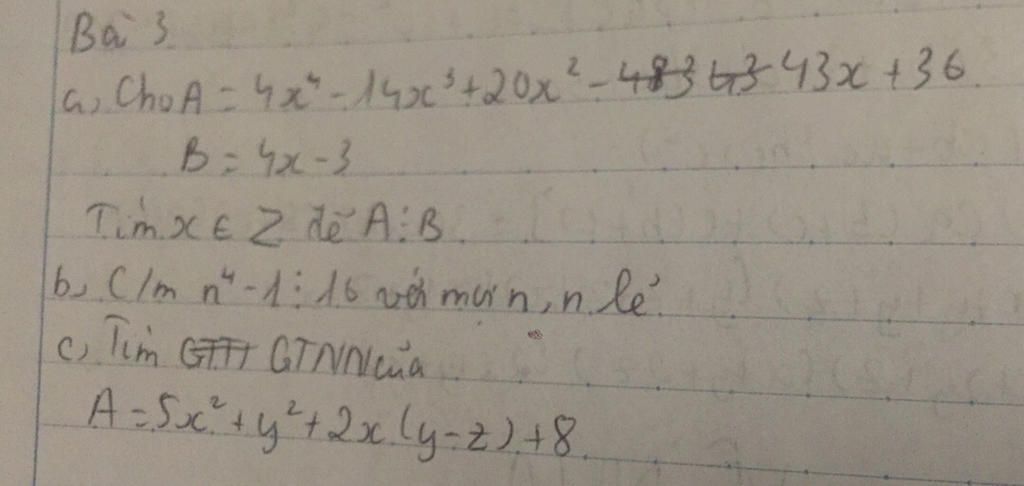 Bài 3
a, Cho A = 4x⁴ - 14x³ + 20x² - 43x + 36
B = 4x - 3
Tìm x ∈ Z để A ⋮ B
b, C/m n⁴ - 1 ⋮ 16 với mọi n, n lẻ
c, Tìm GTNN của
A = 5x² + y² + 2x(y - z) + 8